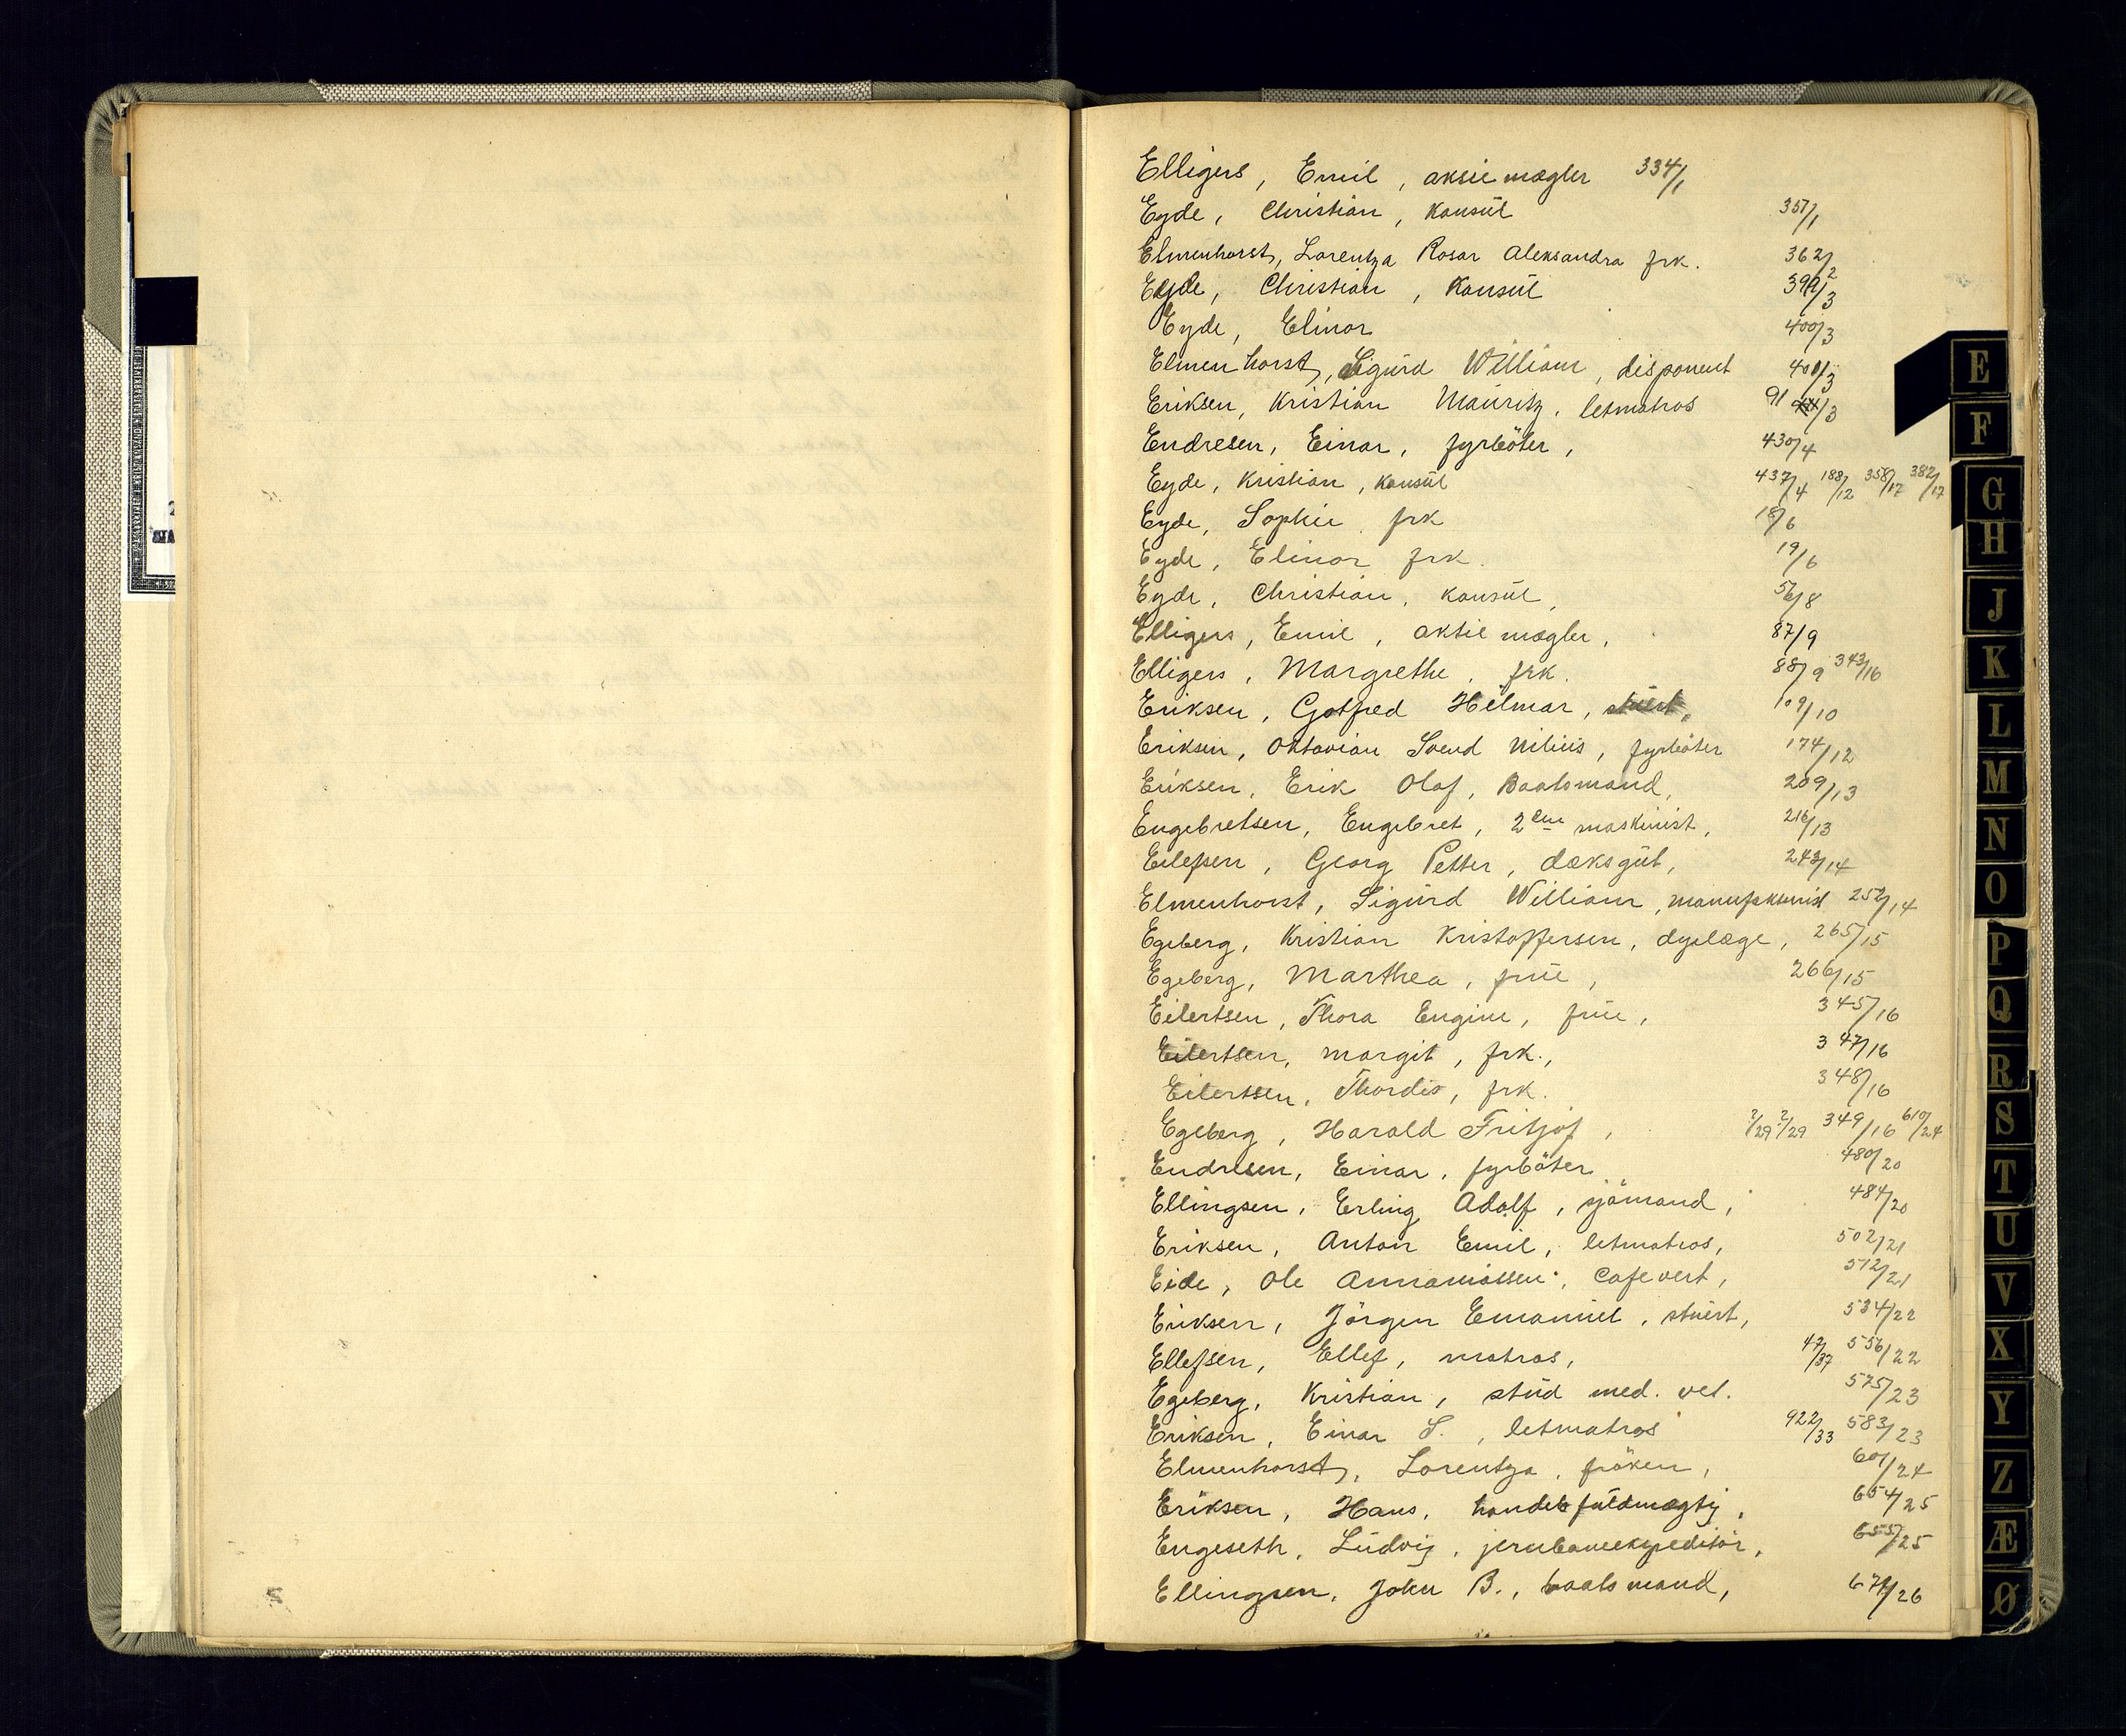 Elligers, Emil, aksiemægler 334/1
Eyde, Christian, konsul 357/1
Elmenhorst, Lorentza Rosar Aleksandra frk. 362/2
Eyde, Christian, konsul 399/3
Eyde, Elinor 400/3
Elmenhorst, Sigurd William, disponent 401/3
Eriksen, Kristian Mauritz, letmatros 91/3
Endresen, Einar, fyrböter, 430/4
Eyde, Kristian, konsul 437/4 188/12 358/17 382/17
Eyde, Sophie frk 18/6
Eyde, Elinor frk. 19/6
Eyde, Christian, konsul, 56/8
Elligers, Emil, aktiemægler, 87/9
Elligers, Margrethe, frk. 88/9 343/16
Eriksen, Gotfred Hilmar, stuert, 109/10
Eriksen, Oktavian Svend Nilius, fyrböter 174/12
Eriksen, Erik Olaf, Baatsmand, 209/13
Engebretsen, Engebret, 2den maskinist, 216/13
Eilefsen, Georg Petter, dæksgut, 243/14
Elmenhorst, Sigurd William, 252/14
Egeberg, Kristian Kristoffersen, dyrlæge, 265/15
Egeberg, Marthea, frue, 266/15
Eilertsen, Thora Engine, frue, 345/16
Eilertsen, margit, frk., 347/16
Eilertsen, Thordis, frk. 348/16
Egeberg, Harald Fritjof, 2/29 2/29 349/16 610/24
Endresen, Einar, fyrböter 480/20
Ellingsen, Erling Adolf, sjömand, 484/20
Eriksen, Anton Emil, letmatros, 502/21
Eide, Ole, Cafevert, 512/21
Eriksen, Jörgen Emanuel, stuert, 534/22
Ellefsen, Ellef, matros, 47/37 556/22
Egeberg, Kristian, stud med. vet. 575/23
Eriksen, Einar S., letmatros 922/33 583/23
Elmenhorst, Lorentza, fröken, 601/24
Eriksen, Hans, handelsfuldmægtig, 654/25
Engeseth, Ludvig, jernbaneekspeditör, 655/25
Ellingsen, John B., baatsmand, 674/26
E
F
G
H
J
K
L
M
N
O
P
Q
R
S
T
U
V
X
Y
Z
Æ
Ø